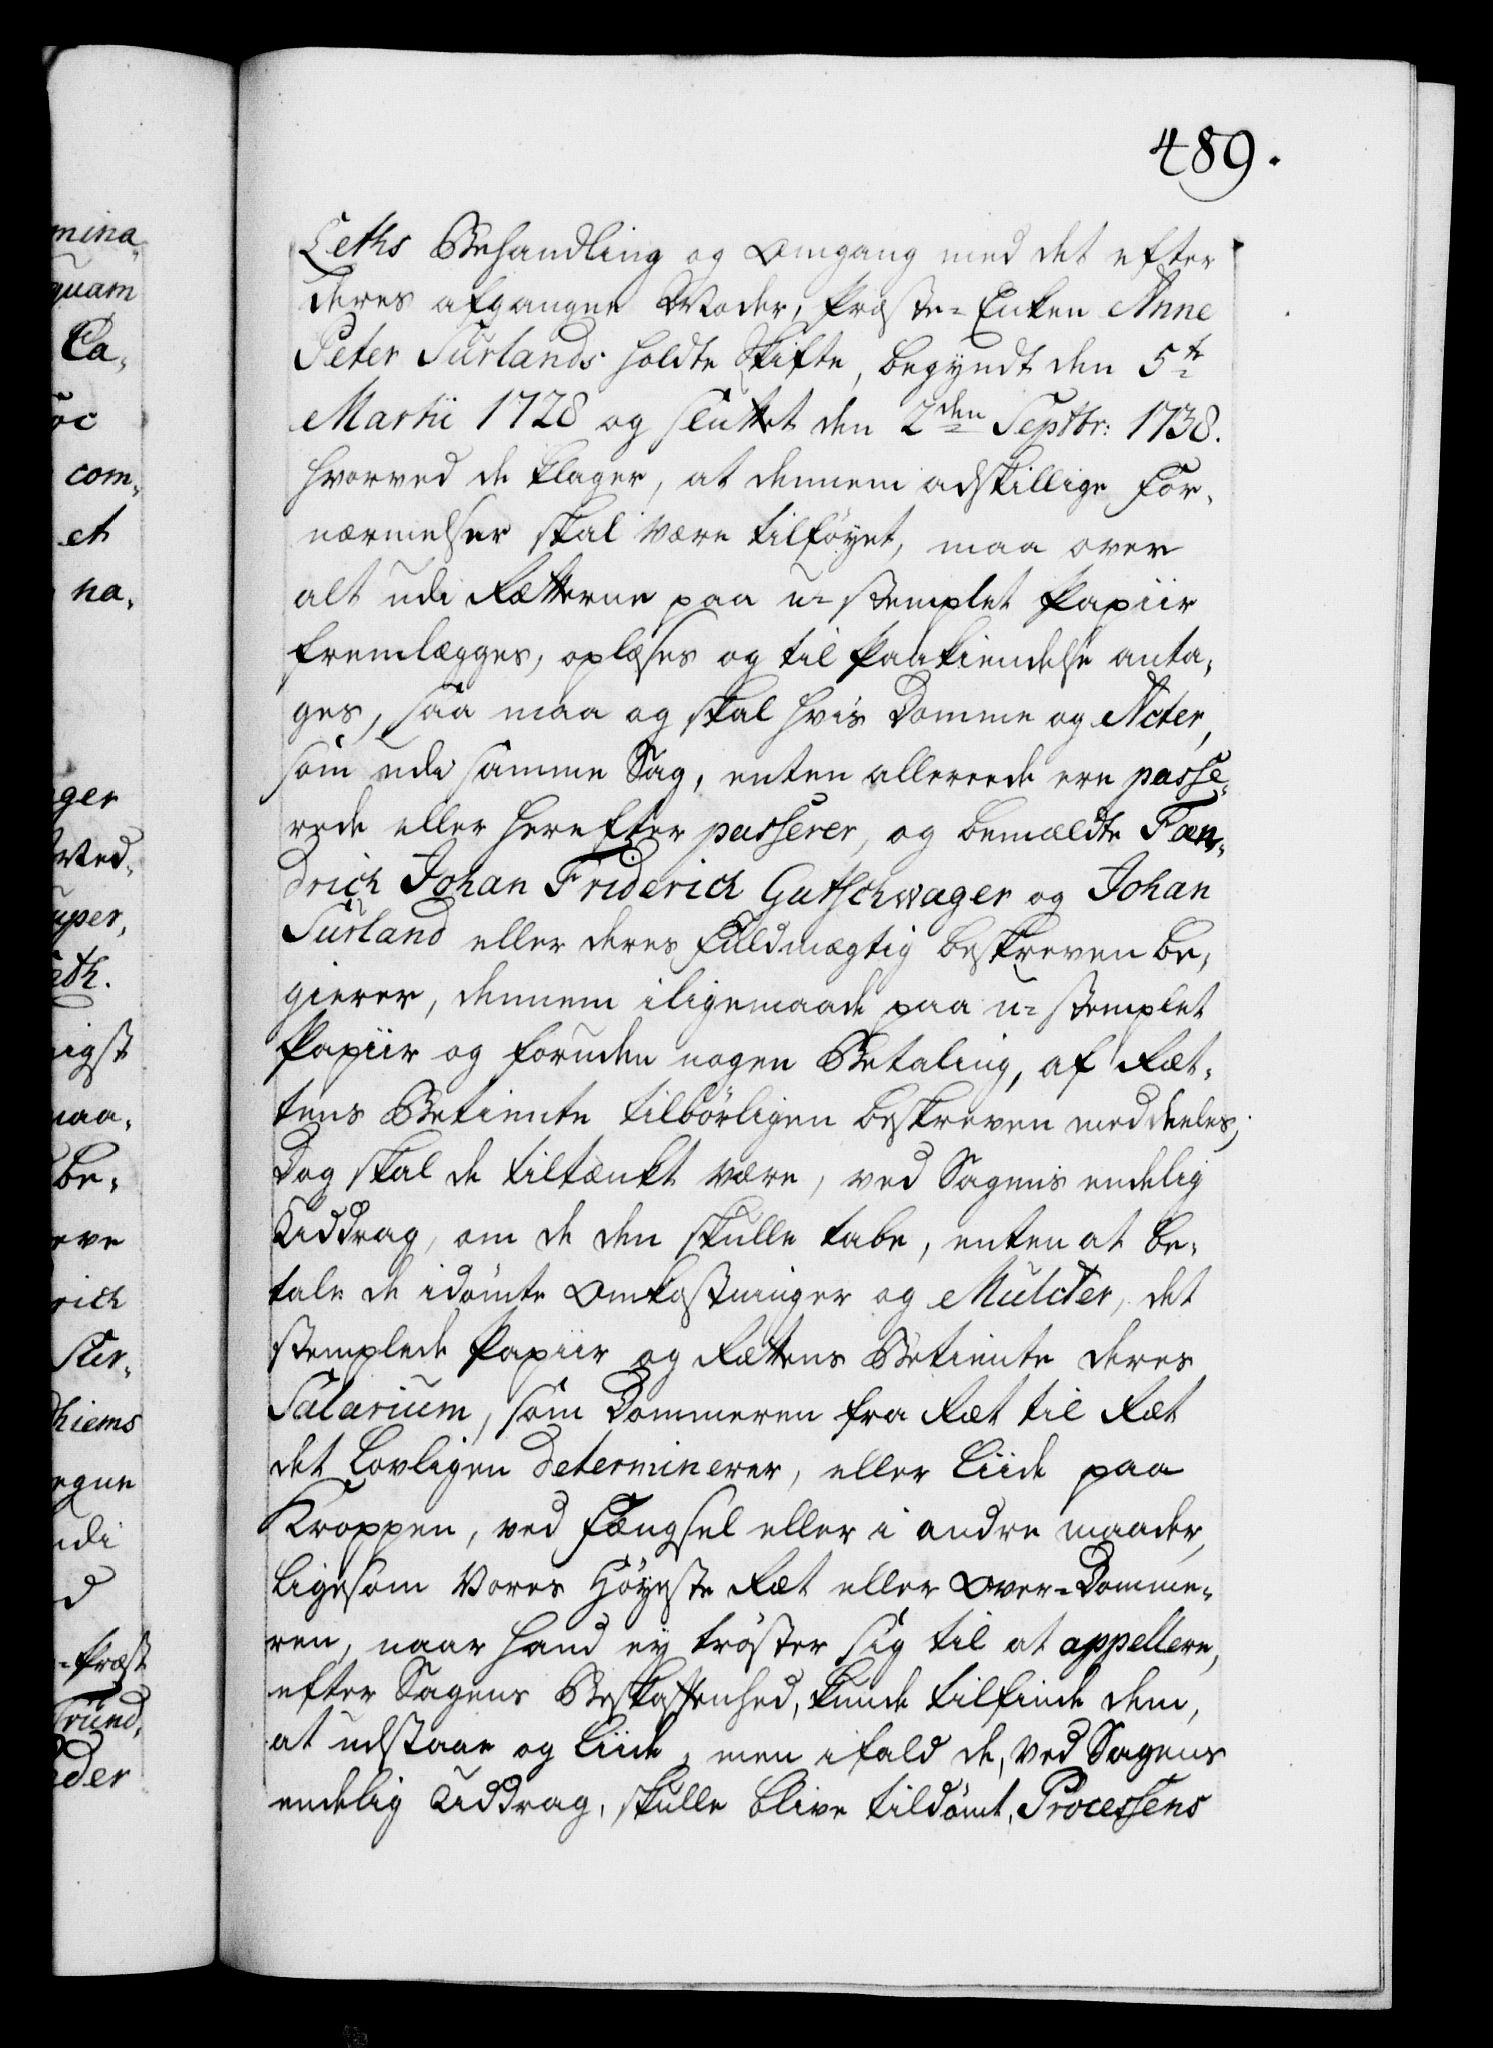 489.
mina-
quam
Ca-
oc
com-
et
na-
ger
Wed-
super,
eth.
nigst
maa-
be-
eve
rich
Sur-
hiems
egne
udi
d
-Præst
Trund-
der
Leths Behandling og Omgang med det efter
deres afgangne Moder, Præste-Enken Anne
Peter Surlands holdte Skifte, begyndt den 5te
Martii 1728 og sluttet den 2den Septbr: 1738.
hvorved de klager, at dennem adskillige For-
nærmelser skal være tilföyet, maa over
alt udi Rætterne paa u-stemplet Papiir
fremlægges, oplæses og til Paakiendelse anta-
ges, saa maa og skal hvis Domme og Acter,
som udi samme Sag, enten allereede ere passe-
rede eller herefter passerer, og bemældte Fæn-
drich Johan Friderich Gutschwager og Johan
Surland eller deres Fuldmægtig beskreven be-
gierer, dennem iligemaade paa u-stemplet
Papiir og foruden nogen Betaling, af Ræt-
tens Betiente tilbörligen beskreven meddeeles,
Dog skal de tiltænkt være, ved Sagens endelig
Uddrag, om de den skulle tabe, enten at be-
tale de idömte Omkostninger og Mulcter, det
stemplede Papiir og Rættens Betiente deres
Salarium, som Dommeren fra Ræt til Ræt
det Lovligen determinerer, eller Liide paa
Kroppen, ved Fængsel eller i andre maader,
ligesom Vores Höyeste Ræt eller Over-Domme-
ren, naar hand ey tröster sig til at appellere,
efter Sagens Beskaffenhed, kunde tilfinde dem,
at udstaae og Liide, men ifald de, ved Sagens
endelig Uddrag, skulle blive tildömt, Processens